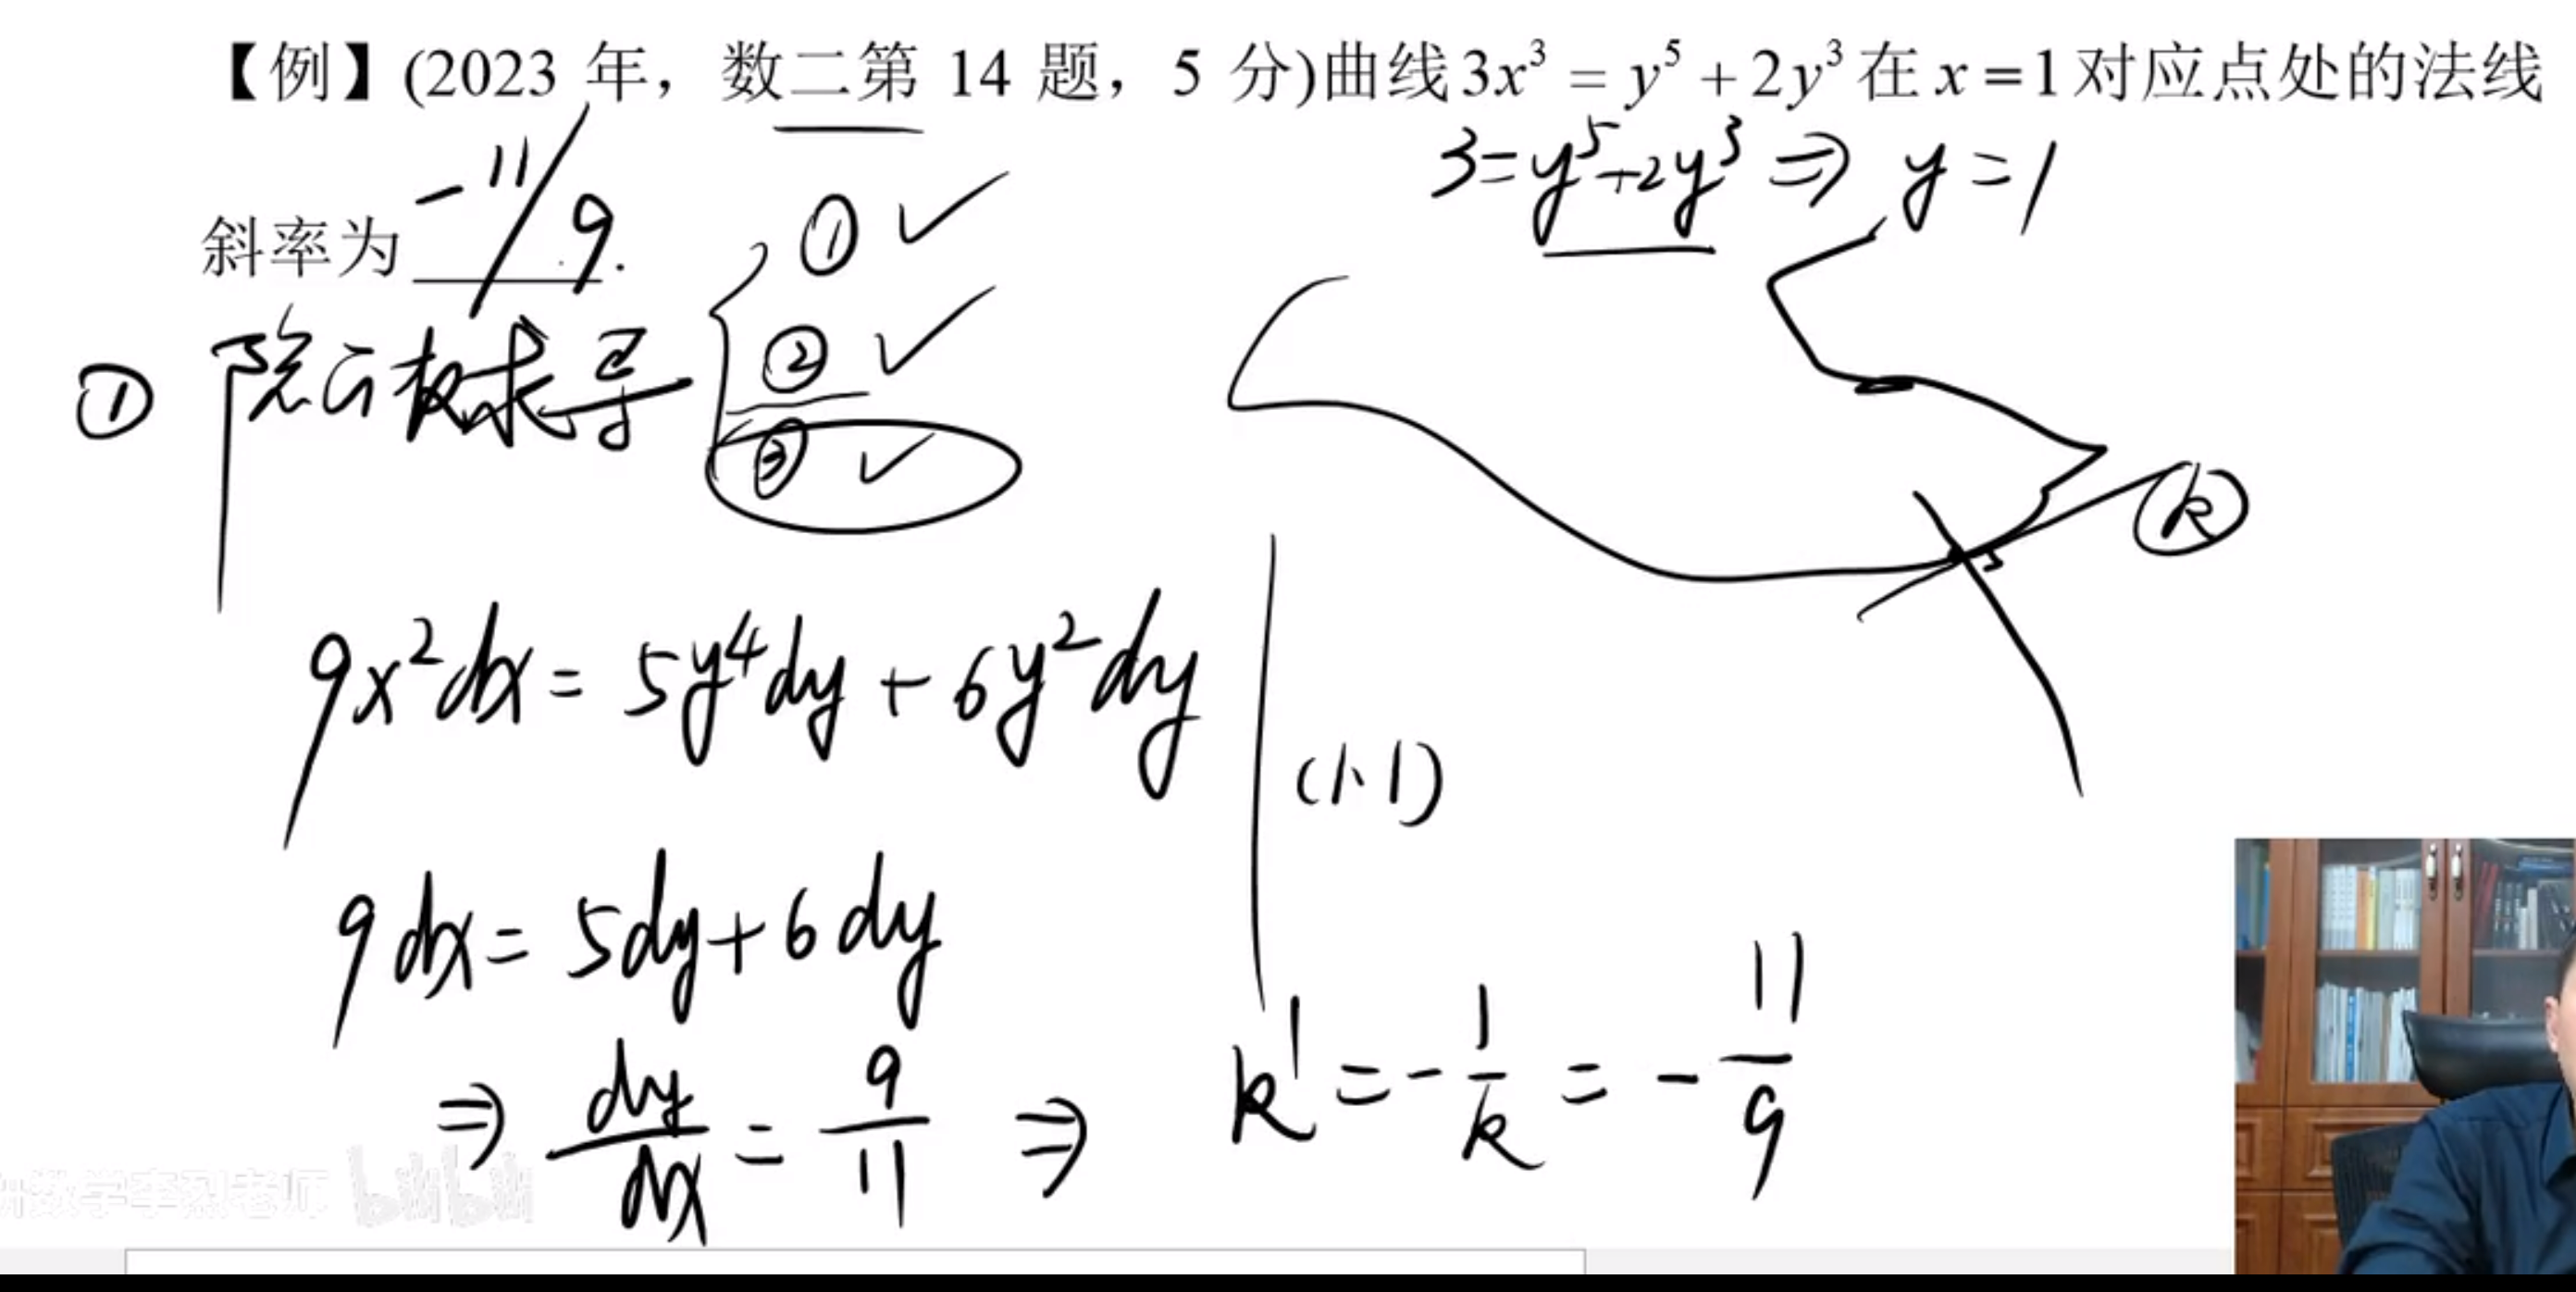 【例】(2023 年，数二第 14 题，5 分)曲线 3x³ = y⁵ + 2y³ 在 x = 1 对应点处的法线
3 = y⁵ + 2y³ ⇒ y = 1
斜率为 -11/9 .
① ✓
② ✓
③ ✓
① 隐函数求导
k
9x²dx = 5y⁴dy + 6y²dy
(1,1)
9dx = 5dy + 6dy
⇒ dy/dx = 9/11 ⇒ k' = -1/k = -11/9
数学李烈老师 bilibili